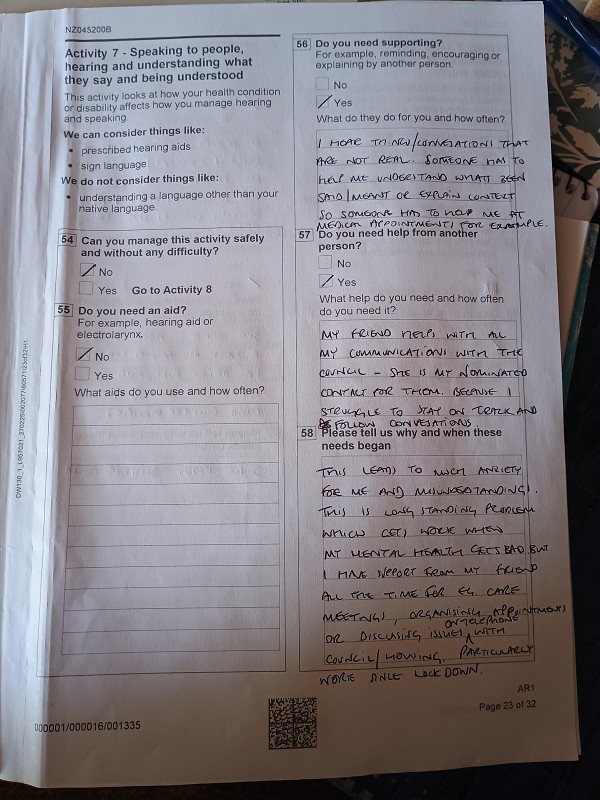 NZ045200B
Activity 7 - Speaking to people,
hearing and understanding what
they say and being understood
This activity looks at how your health condition
or disability affects how you manage hearing
and speaking.
We can consider things like:
• prescribed hearing aids
• sign language.
We do not consider things like:
• understanding a language other than your
native language.
54 Can you manage this activity safely
and without any difficulty?
No
Yes Go to Activity 8
55 Do you need an aid?
For example, hearing aid or
electrolarynx.
No
Yes
What aids do you use and how often?
56 Do you need supporting?
For example, reminding, encouraging or
explaining by another person.
No
Yes
What do they do for you and how often?
I HEAR THINGS/CONVESATIONS THAT
ARE NOT REAL. SOMEONE HAS TO
HELP ME UNDERSTAND WHATS BEEN
SAID/MEANT OR EXPLAIN CONTEXT
SO SOMEONE HAS TO HELP ME AT
MEDICAL APPOINTMENTS FOR EXAMPLE.
57 Do you need help from another
person?
No
Yes
What help do you need and how often
do you need it?
MY FRIEND HELPS WITH ALL
MY COMMUNICATIONS WITH THE
COUNCIL - SHE IS MY NOMINATED
CONTACT FOR THEM. BECAUSE I
STRUGGLE TO STAY ON TRACK AND
FOLLOW CONVESATIONS
58 Please tell us why and when these
needs began
THIS LEADS TO MUCH ANXIETY
FOR ME AND MISUNDERSTANDINGS.
THIS IS LONG STANDING PROBLEM
WHICH GETS WORSE WHEN
MY MENTAL HEALTH GETS BAD BUT
I HAVE SUPPORT FROM MY FRIEND
ALL THE TIME FOR EG. CARE
MEETINGS, ORGANISING APPOINTMENTS
OR DISCUSING ISSUES ON TELEPHONE WITH
COUNCIL/HOUSING. PARTICULARLY
WORSE SINCE LOCKDOWN.
AR1
Page 23 of 32
000001/000016/001335